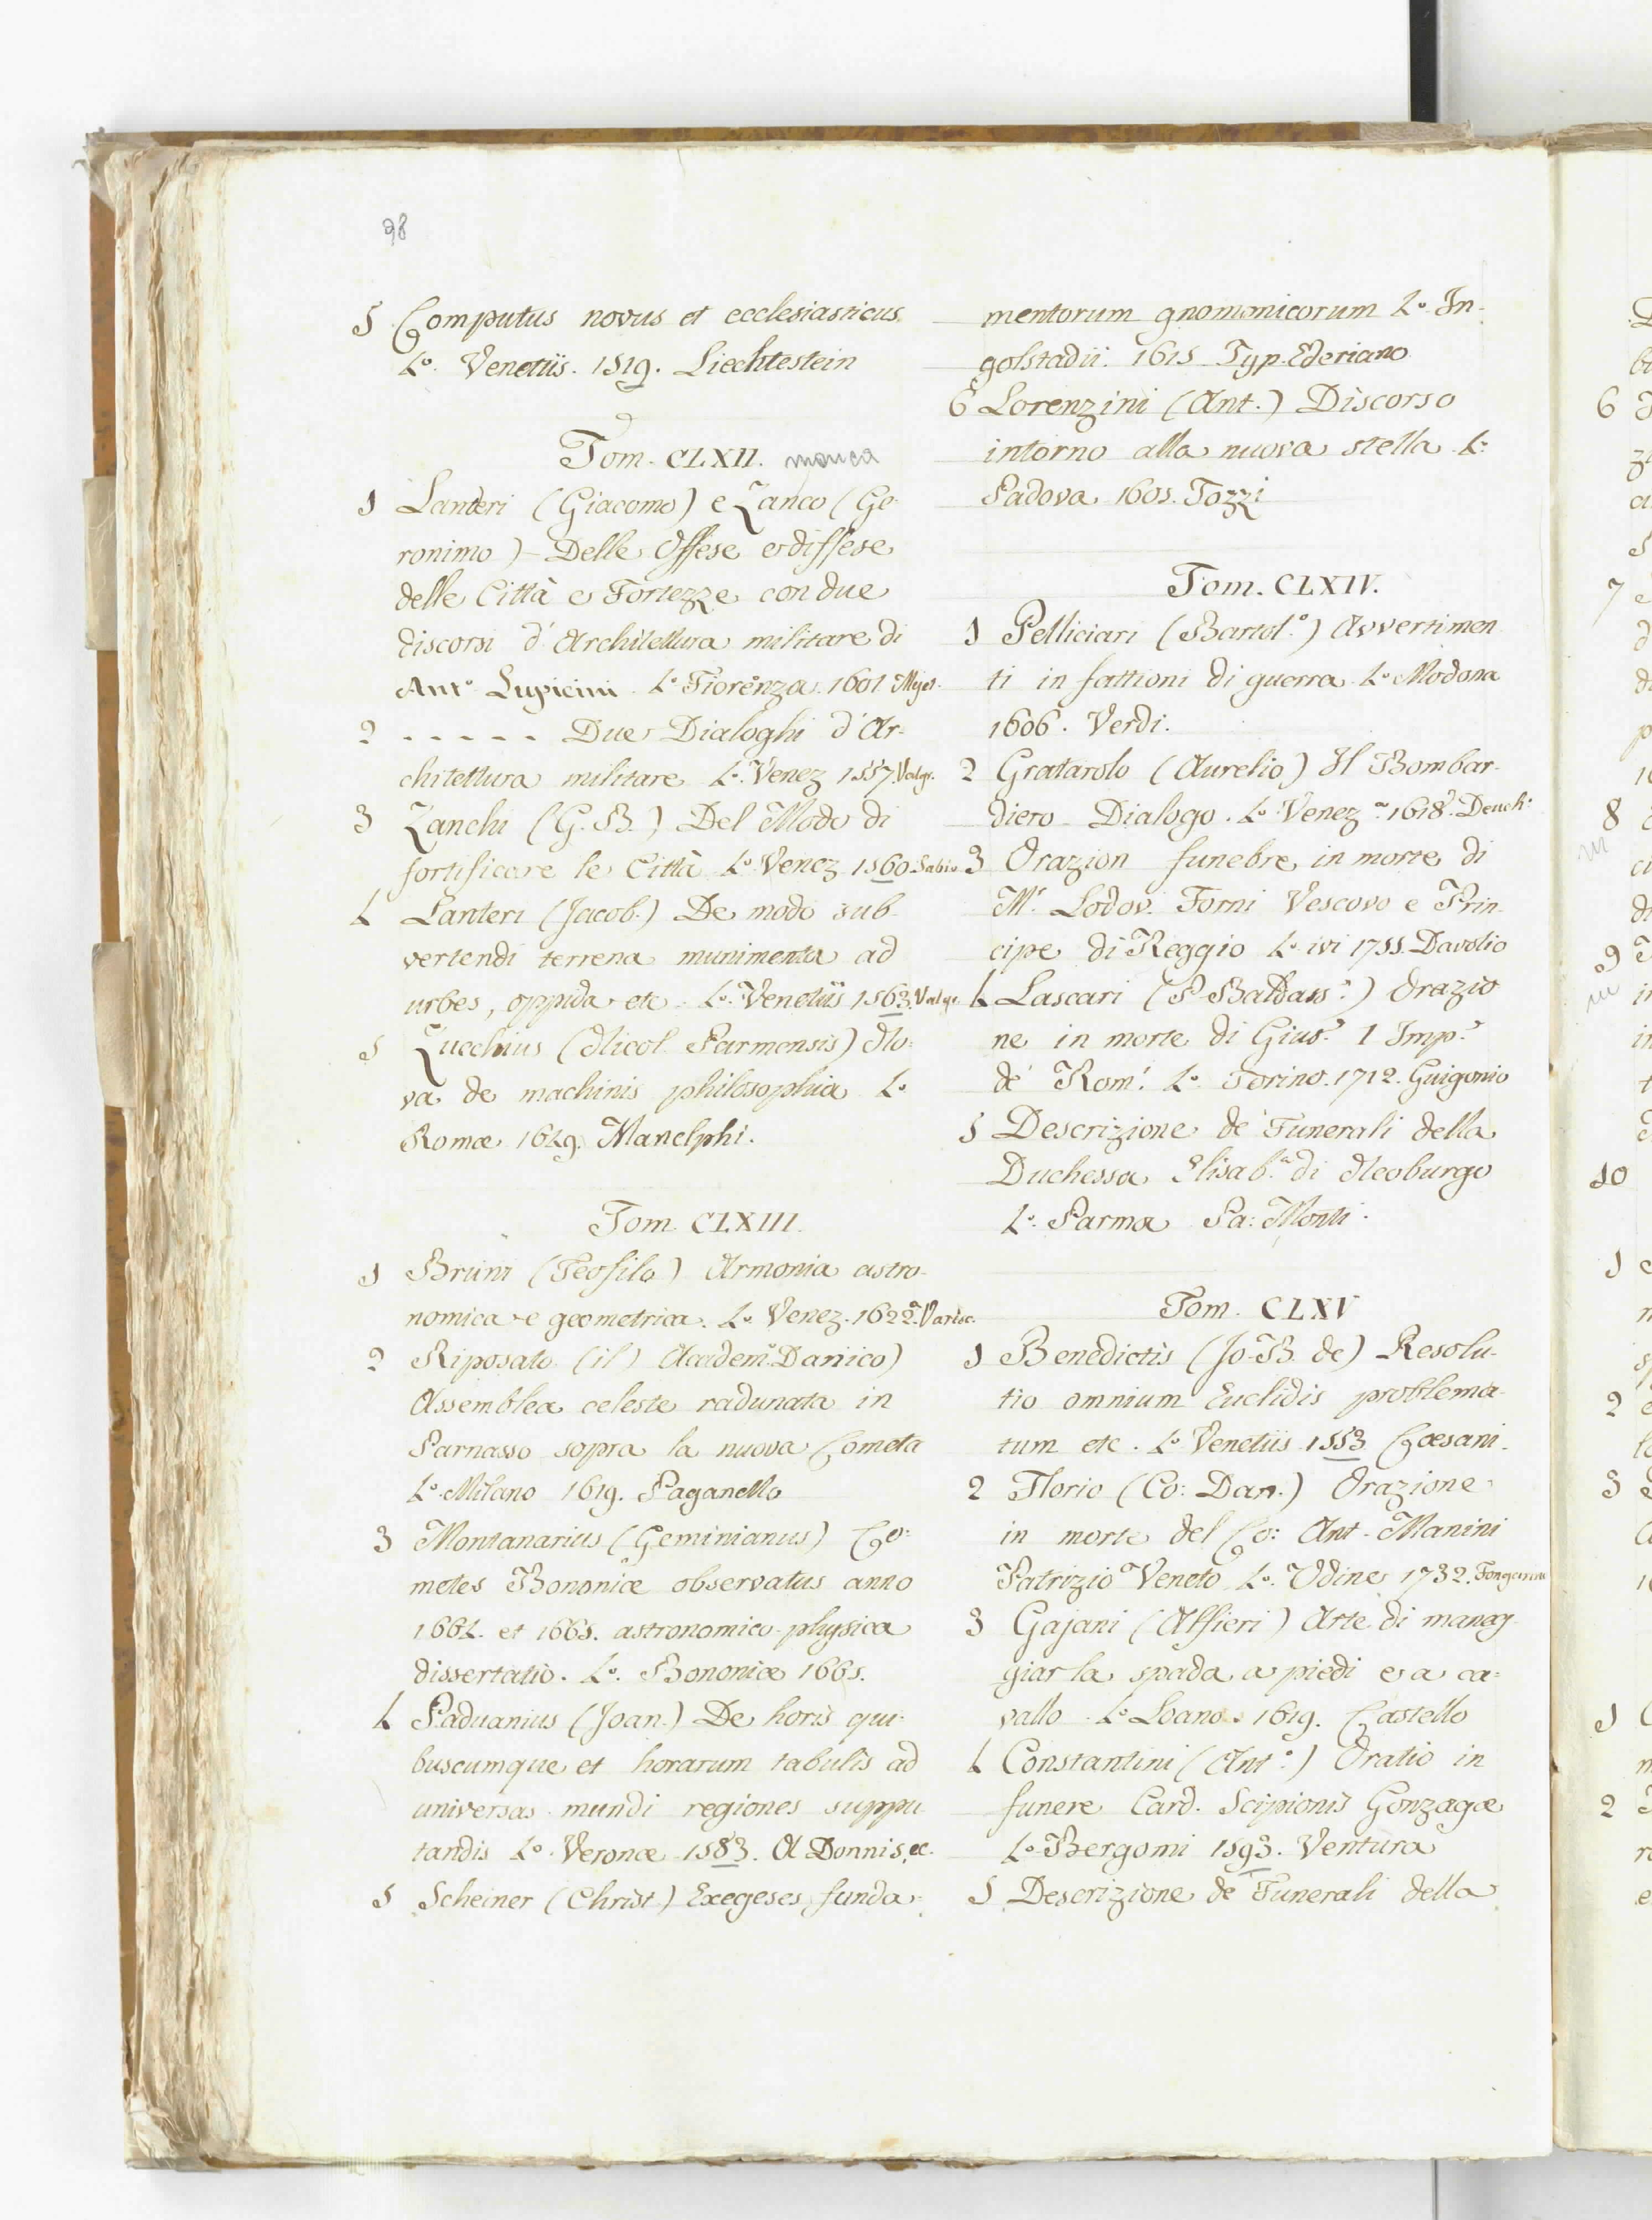 98
5 Computus novus et ecclesiasticus
4.º Venetiis. 1519. Liechtestein
Tom. CLXII. manca
1 Lanteri (Giacomo) e Zanco (Ge-
ronimo) Delle Offese e diffese
delle Città e Fortezze con due
discorsi d'Architettura militare di
Ant.º Lupicini 4.º Fiorenza. 1601
2 - - - - - Due Dialoghi d'Ar-
chitettura militare 4.º Venez 1557. Valgr.
3 Zanchi (G. B.) Del Modo di
fortificare le Città 4.º Venez 1560 Sabio
4 Lanteri (Jacob.) De modo sub-
vertendi terrena munimenta ad
urbes, oppida etc. 4.º Venetiis 1563. Valgr.
5 Zucchius (Nicol. Parmensis) No-
va de machinis philosophia 4.º
Romæ 1649. Manelphi.
Tom. CLXIII.
1 Bruni (Teofilo) Armonia astro-
nomica e geometrica. 4.º Venez. 1622. Varisc.
2 Riposato (il) Academ.º Daniico)
Assemblea celeste radunata in
Parnasso sopra la nuova Cometa
4.º Milano 1619. Paganello
3 Montanarius (Geminianus) Co-
metes Bononiæ observatus anno
1664. et 1665. astronomico-physica
dissertatio. 4.º Bononiæ 1665.
4 Paduanius (Joan.) De horis qui-
buscumque et horarum tabulis ad
universas mundi regiones suppu-
tandis 4.º Veronæ 1583. A Donnis, ec.
5 Scheiner (Christ.) Exegeses funda-
mentorum gnomonicorum 4.º In-
golstadii. 1615 Typ. Ederiano
6 Lorenzini (Ant.) Discorso
intorno alla nuova stella 4.º
Padova 1605. Tozzi
Tom. CLXIV.
1 Pelliciari (Bartol.º) Avvertimen
ti in fattioni di guerra 4.º Modona
1606. Verdi.
2 Gratarolo (Aurelio) Il Bombar-
diero Dialogo. 4.º Venez.ª 1618. Deuch.º
3 Orazion funebre in morte di
M.r Lodov. Forni Vescovo e Prin-
cipe di Reggio 4.º ivi 1755. Davolio
4 Lascari (P. Baldass.e) Orazio
ne in morte di Gius.e I Imp.e
de' Rom.i 4.º Torino. 1712. Guigonio
5 Descrizione de' Funerali della
Duchessa Elisab.ª di Neoburgo
4.º Parma Pa: Monti.
Tom. CLXV
1 Benedictis (Jo-B. de) Resolu-
tio omnium Euclidis problema-
tum etc. 4.º Venetiis 1553 Cæsani.
2 Florio (Co: Dan.) Orazione
in morte del Co: Ant. Manini
Patrizio Veneto 4.º Udine 1732.
3 Gajani (Alfieri) Arte di maneg-
giar la spada a piedi e a ca-
vallo 4.º Loano. 1619. Castello
4 Constantini (Ant.º) Oratio in
funere Card. Scipionis Gonzagæ
4.º Bergomi 1593. Ventura
5 Descrizione de' Funerali della
6
7
8
9
10
1
2
3
1
2